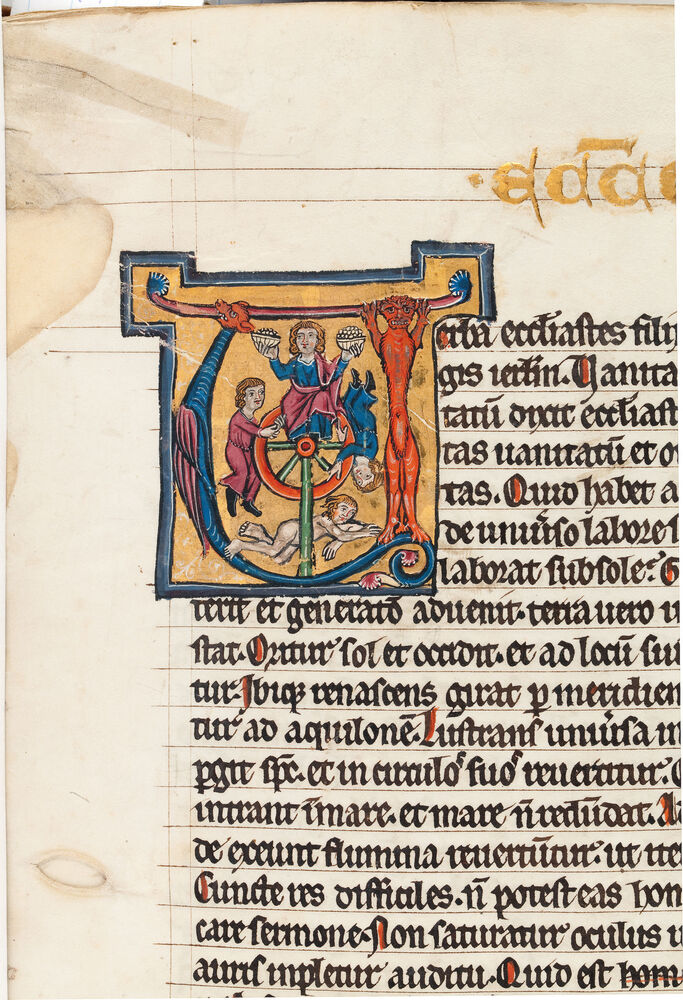 ·ecc̄
Verba eccl̄iastes filij
gis ierl̄m. Vanita
tatū dixit eccl̄iast
tas uanitatū et o
tas. Quid habet a
de uniũso labore
laborat sub sole? G
terit et generatō aduenit. terra uero
stat. Oritur sol et occidit. et ad locū sui
tur. Ibiq; renascens girat ꝑ meridien
tur ad aquilonē. Lustrans uniũsa in
ꝑgit sp̄c. et in circulos suos reuertitur.
intrant ī mare. et mare n̄ redūdat. A
de exeunt flumina reuertūtur. ut ite
Cuncte res difficiles. n̄ potest eas hom
care sermone. Non saturatur oculus u
auris inpletur auditu. Quid est